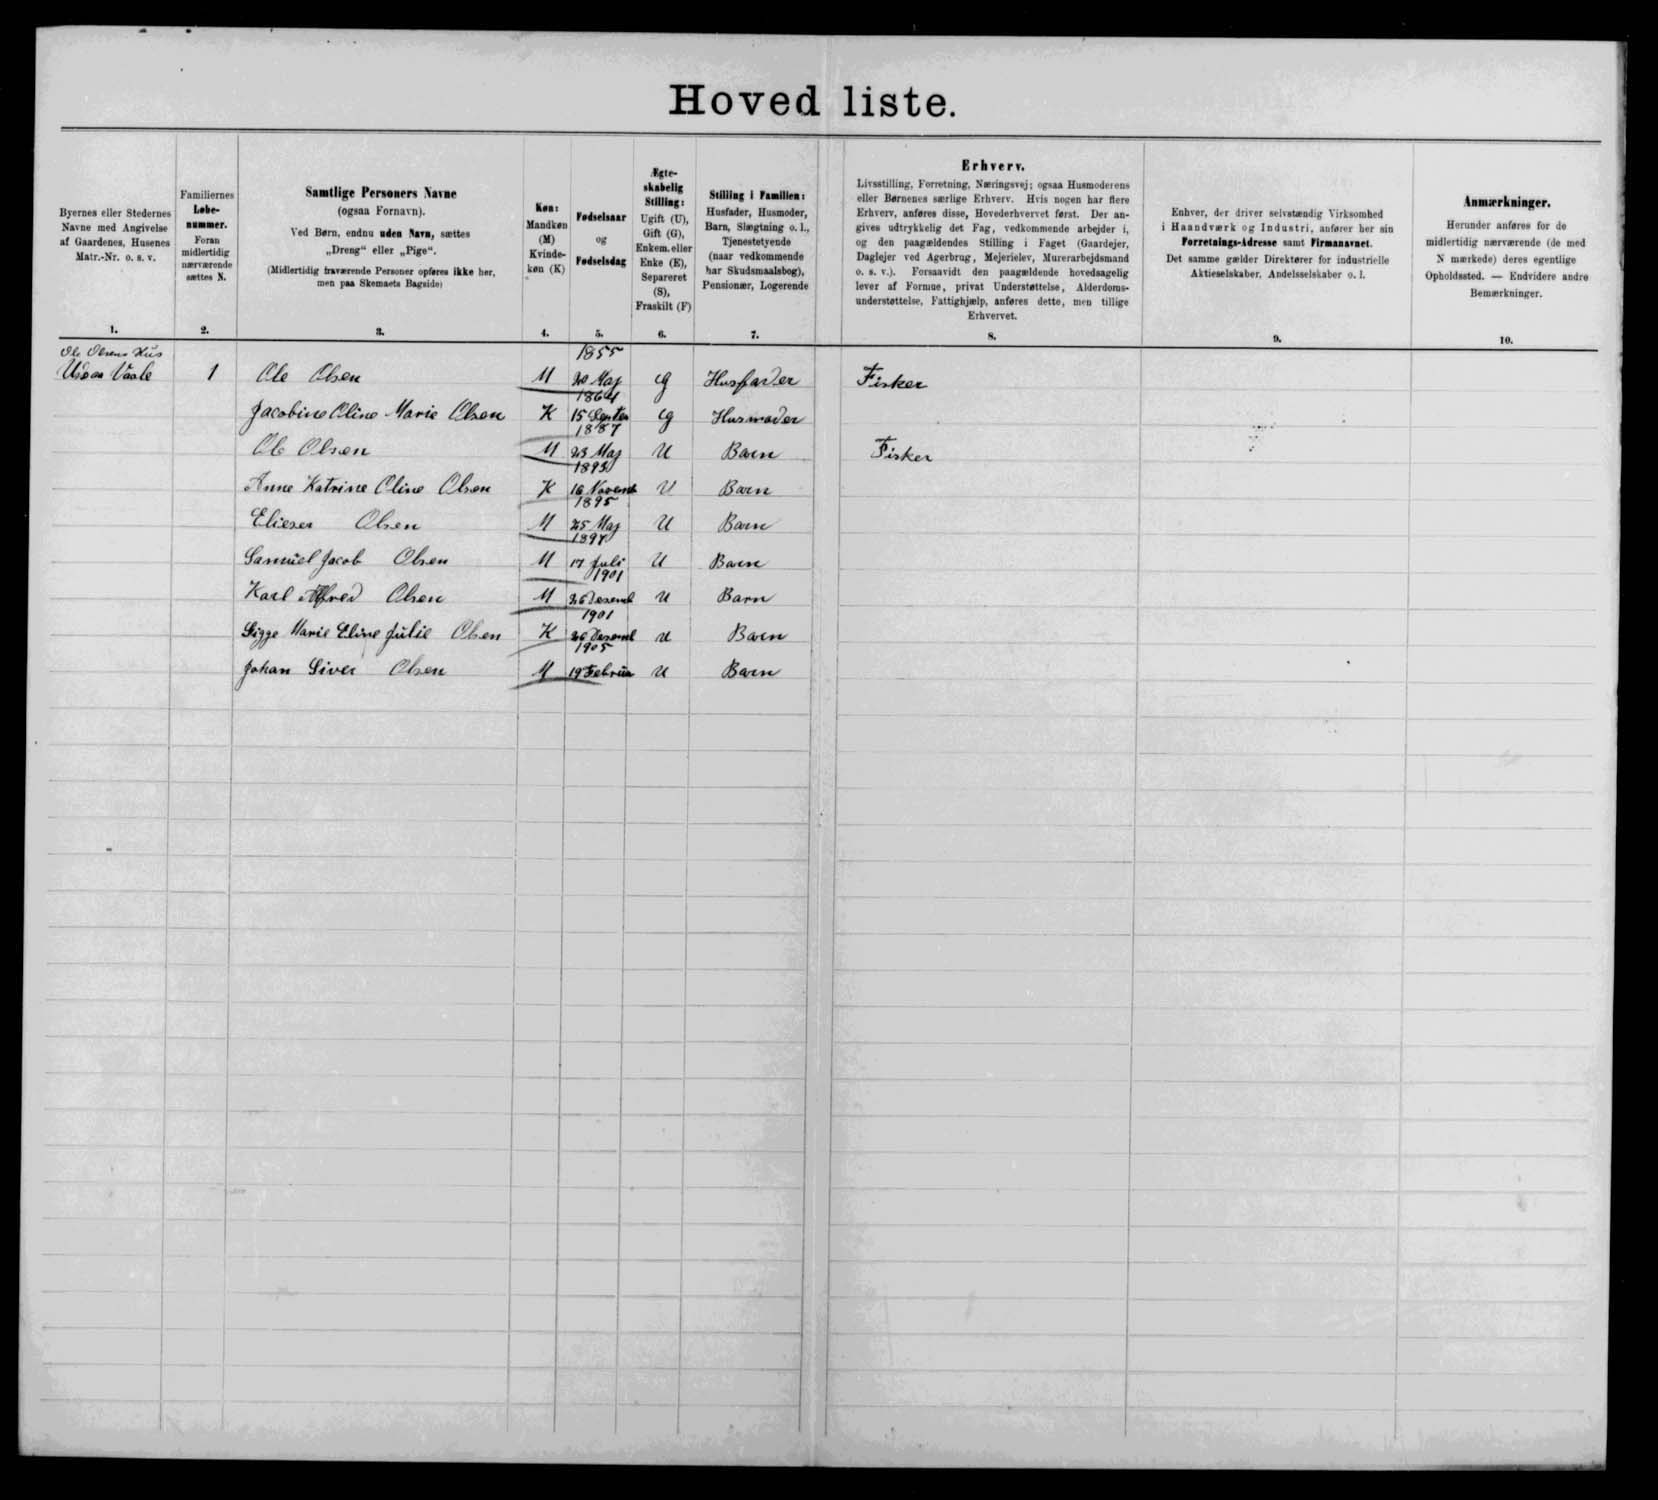 Hoved liste.
Byernes eller Stedernes
Navne med Angivelse
af Gaardenes, Husenes
Matr.-Nr. o. s. v.
1.
Familiernes
Løbe-
nummer.
Foran
midlertidig
nærværende
sættes N.
2.
Samtlige Personers Navne
(ogsaa Fornavn).
Ved Børn, endnu uden Navn, sættes
„Dreng“ eller „Pige“.
(Midlertidig fraværende Personer opføres ikke her,
men paa Skemaets Bagside)
3.
Køn:
Mandkøn
(M)
Kvinde-
køn (K)
4.
Fødselsaar
og
Fødselsdag
5.
Ægte-
skabelig
Stilling:
Ugift (U),
Gift (G),
Enkem. eller
Enke (E),
Separeret
(S),
Fraskilt (F)
6.
Stilling i Familien:
Husfader, Husmoder,
Barn, Slægtning o. l.,
Tjenestetyende
(naar vedkommende
har Skudsmaalsbog),
Pensionær, Logerende
7.
Erhverv.
Livsstilling, Forretning, Næringsvej; ogsaa Husmoderens
eller Børnenes særlige Erhverv. Hvis nogen har flere
Erhverv, anføres disse, Hovederhvervet først. Der an-
gives udtrykkelig det Fag, vedkommende arbejder i,
og den paagældendes Stilling i Faget (Gaardejer,
Daglejer ved Agerbrug, Mejerielev, Murerarbejdsmand
o. s. v.). Forsaavidt den paagældende hovedsagelig
lever af Formue, privat Understøttelse, Alderdoms-
understøttelse, Fattighjælp, anføres dette, men tillige
Erhvervet.
8.
Enhver, der driver selvstændig Virksomhed
i Haandværk og Industri, anfører her sin
Forretnings-Adresse samt Firmanavnet.
Det samme gælder Direktører for industrielle
Aktieselskaber, Andelsselskaber o. l.
9.
Anmærkninger.
Herunder anføres for de
midlertidig nærværende (de med
N mærkede) deres egentlige
Opholdssted. — Endvidere andre
Bemærkninger.
10.
Ole Olsens Hus
1855
Vaale 1 Ole Olsen M 20 Maj G Husfader Fisker
1864
Jacobine Oline Marie Olsen K 15 Septer G Husmoder
1887
Ole Olsen M 23 Maj U Barn Fisker
1893
Anne Katrine Oline Olsen K 16 Novemb U Barn
1895
Elieser Olsen M 25 Maj U Barn
1897
Samuel Jacob Olsen M 17 Juli U Barn
1901
Karl Alfred Olsen M 26 Desemb U Barn
1901
Sigge Marie Eline Julie Olsen K 26 Desemb U Barn
1905
Johan Siver Olsen M 19 Februa U Barn